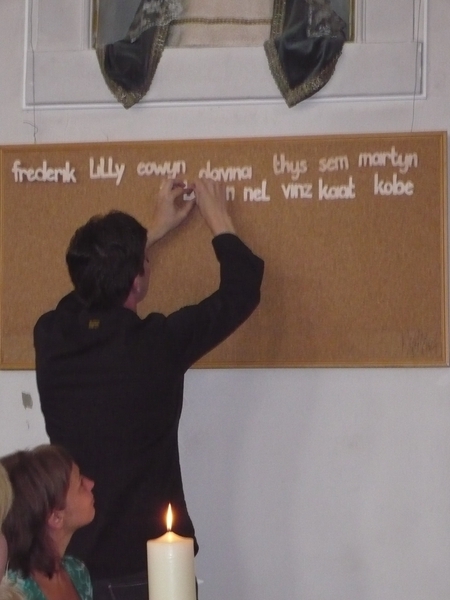 frederik Lilly eowyn olavina thys sem martyn
nel vinz kaat kobe